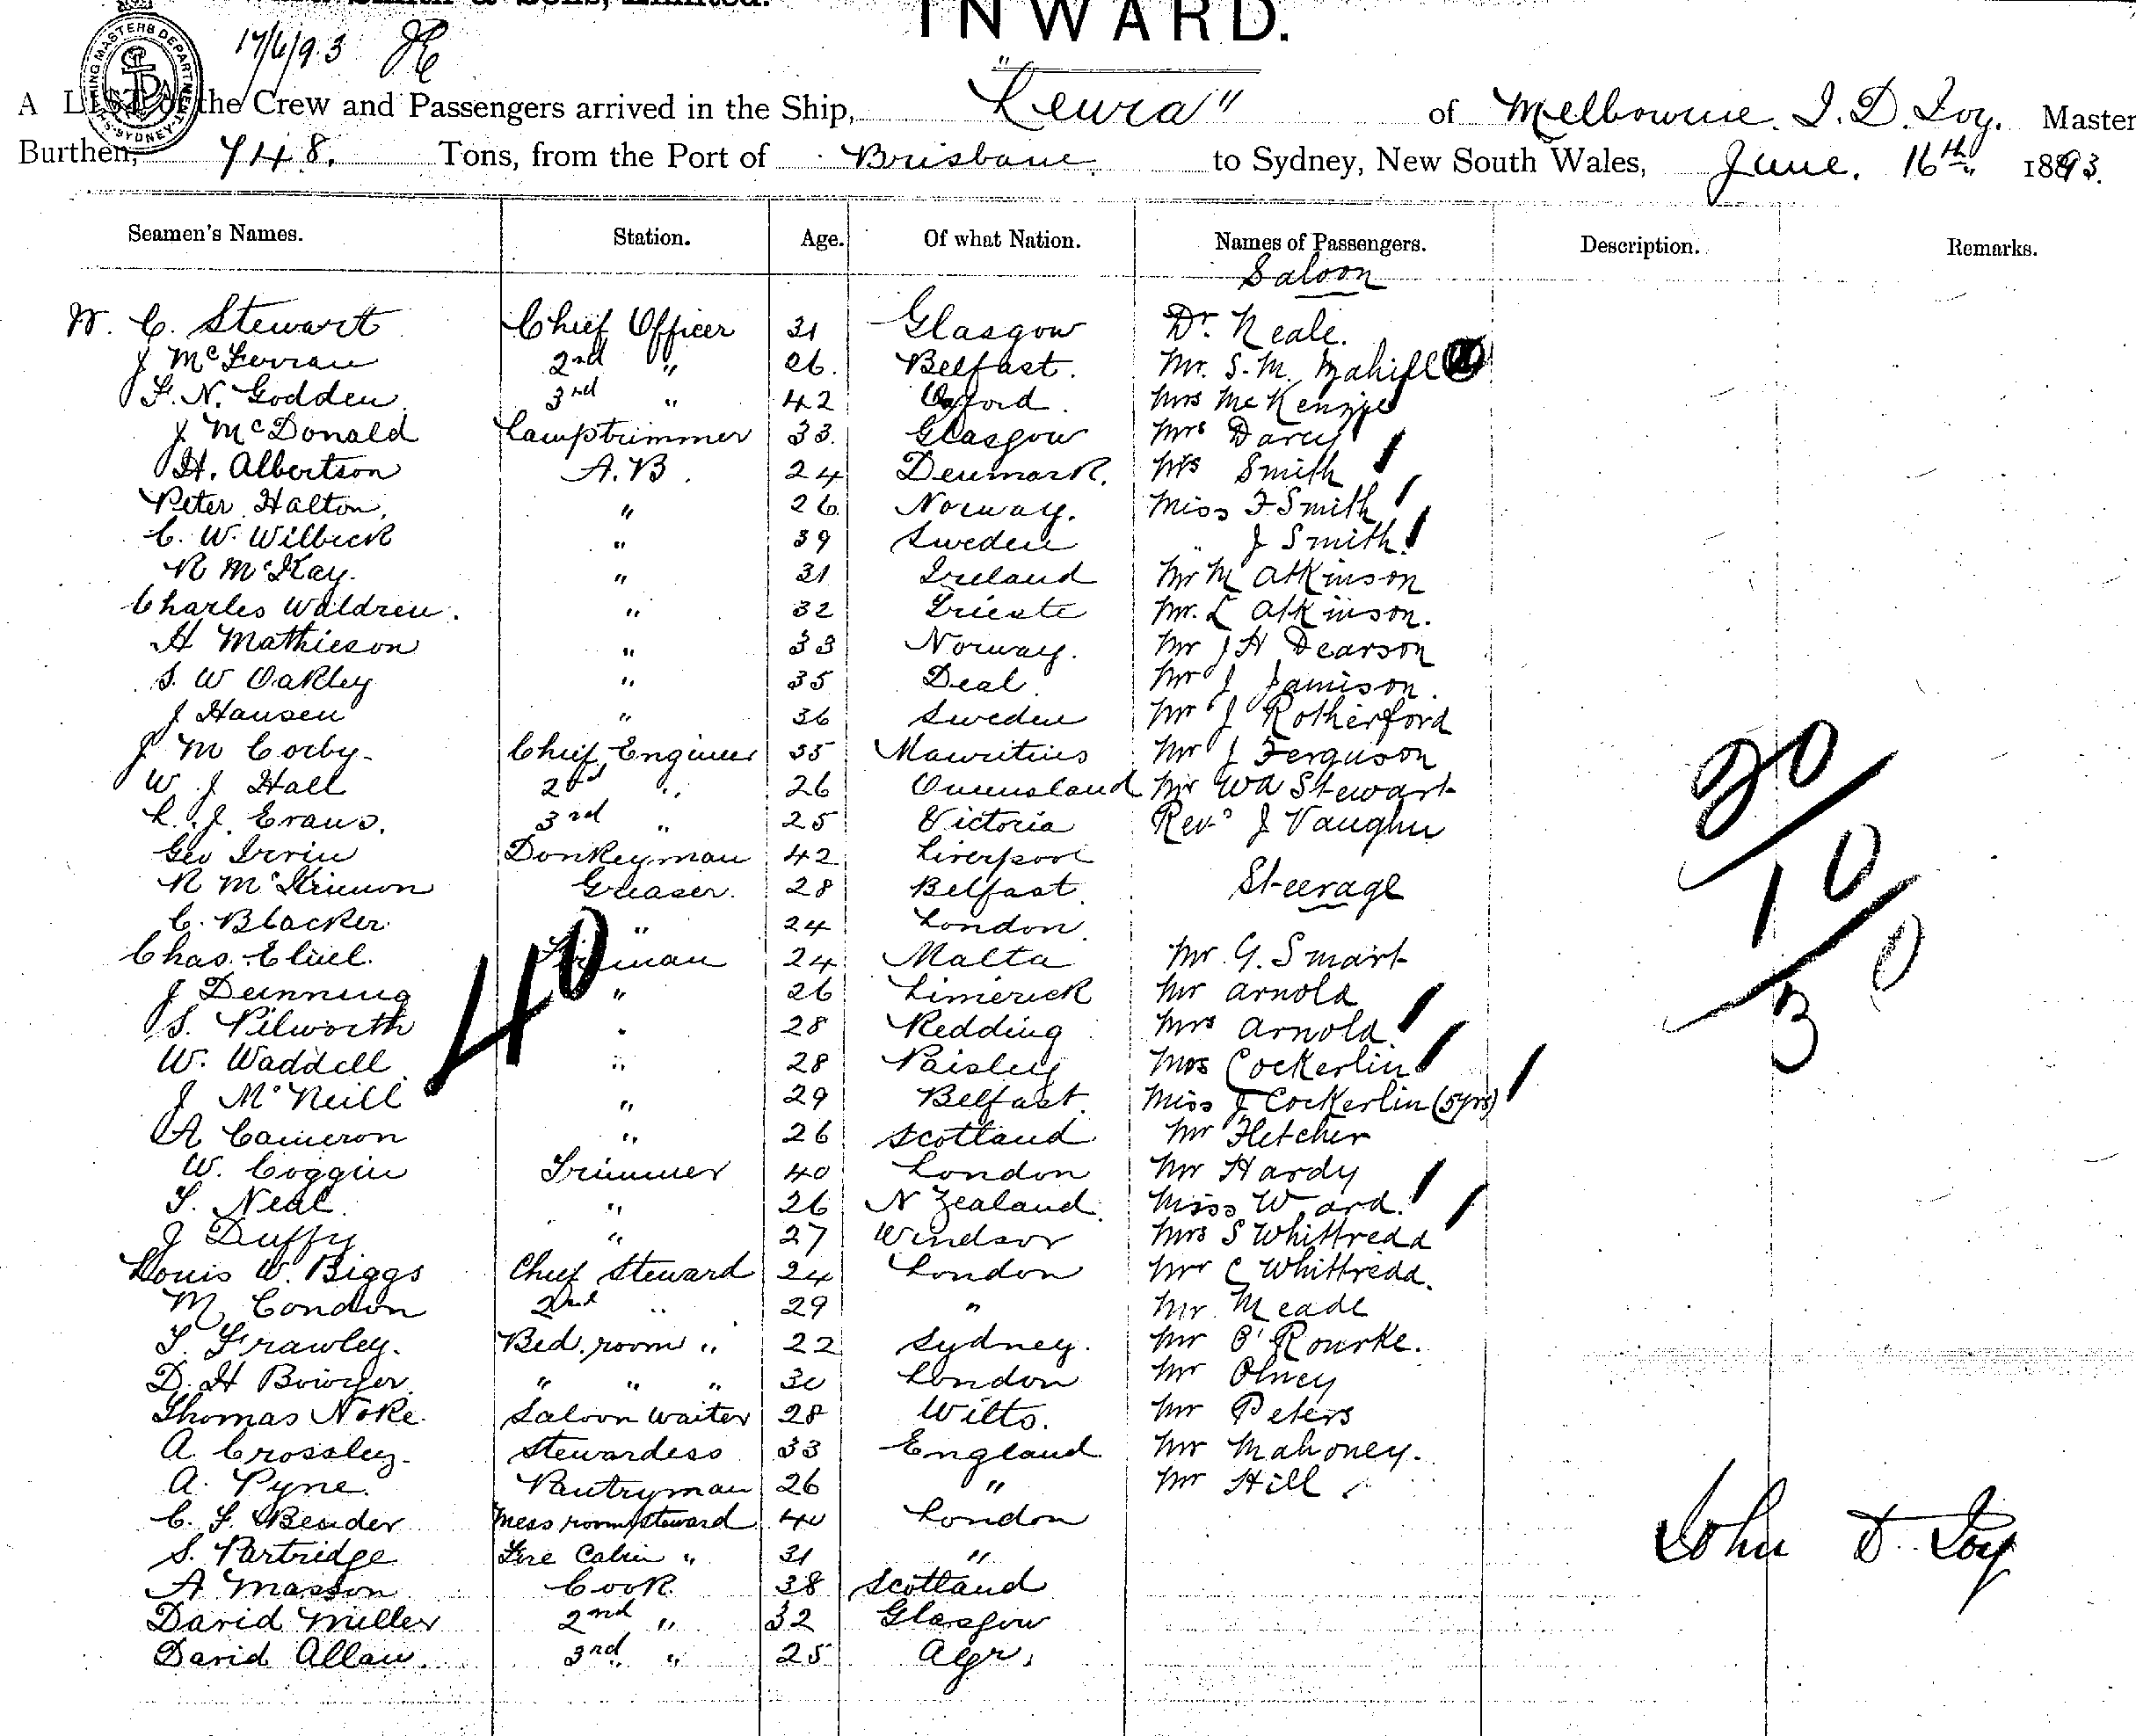 & Sons, Limited.
INWARD.
SHIPPING MASTERS DEPARTMENT SYDNEY
17/6/93
A LIST of the Crew and Passengers arrived in the Ship, "Leura" of Melbourne. J. D. Toy. Master
Burthen, 748. Tons, from the Port of Brisbane to Sydney, New South Wales, June. 16th 1893.
Seamen's Names. Station. Age. Of what Nation. Names of Passengers. Description. Remarks.
Saloon
W. C. Stewart Chief Officer 31 Glasgow Dr. Neale.
J McFerran 2nd " 26. Belfast. Mr. S. M.
F. N. Godden 3rd " 42 Oxford. Mrs McKenzie
J McDonald Lamptrimmer 33. Glasgow Mrs Darcy
H. Albertson A.B. 24 Denmark. Mrs Smith
Peter Halton. " 26. Norway. Miss F Smith
C. W. Wilbeck " 39 Sweden " J Smith
R McKay. " 31 Ireland Mr M Atkinson
Charles Waldren. " 32 Trieste Mr. L Atkinson.
H Mathieson " 33 Norway. Mr J H Dearson
S. W Oakley " 35 Deal. Mr J Jamison.
J Hansen " 36 Sweden Mr J Rotherford
J M Corby. Chief Engineer 35 Mauritius Mr J Ferguson
W. J Hall 2nd " 26 Queensland Mr Wa Stewart
L. J. Evans. 3rd " 25 Victoria Revd J Vaughn
Geo Irvin Donkeyman 42 Liverpool
R McKinnon Greaser. 28 Belfast. Steerage
C. Blacker. " 24 London.
Chas. Fireman 24 Malta Mr G. Smart
J Dunning " 26 Limerick Mr Arnold
S. Pilworth " 28 Redding Mrs Arnold
W. Waddell " 28 Paisley Mrs Cockerlin
J McNeill " 29 Belfast. Miss J Cockerlin (5yrs)
A Cameron " 26 Scotland Mr Fletcher
W. Coggin Trimmer 40 London Mr Hardy
T. Neal. " 26 N Zealand. Miss Ward.
J Duffy " 27 Windsor Mrs S Whittredd
Louis W. Biggs Chief Steward 24 London Mr C Whittredd.
M. Condon 2nd " 29 " Mr. Meade
T. Frawley. Bed. room " 22 Sydney. Mr O'Rourke.
D. H Bowyer. " " " 30 London Mr Olney
Thomas Noke. Saloon Waiter 28 Wilts. Mr Peters
A. Crossley. Stewardess 33 England Mr Mahoney.
A. Pyne. Pantryman 26 " Mr Hill
C. F. Bender Messroom steward 40 London
S. Partridge Fore Cabin " 31 "
A Masson Cook. 38 Scotland
David Miller 2nd " 32 Glasgow
David Allan. 3rd " 25 Ayr.
40
20
10
30
John D. Toy